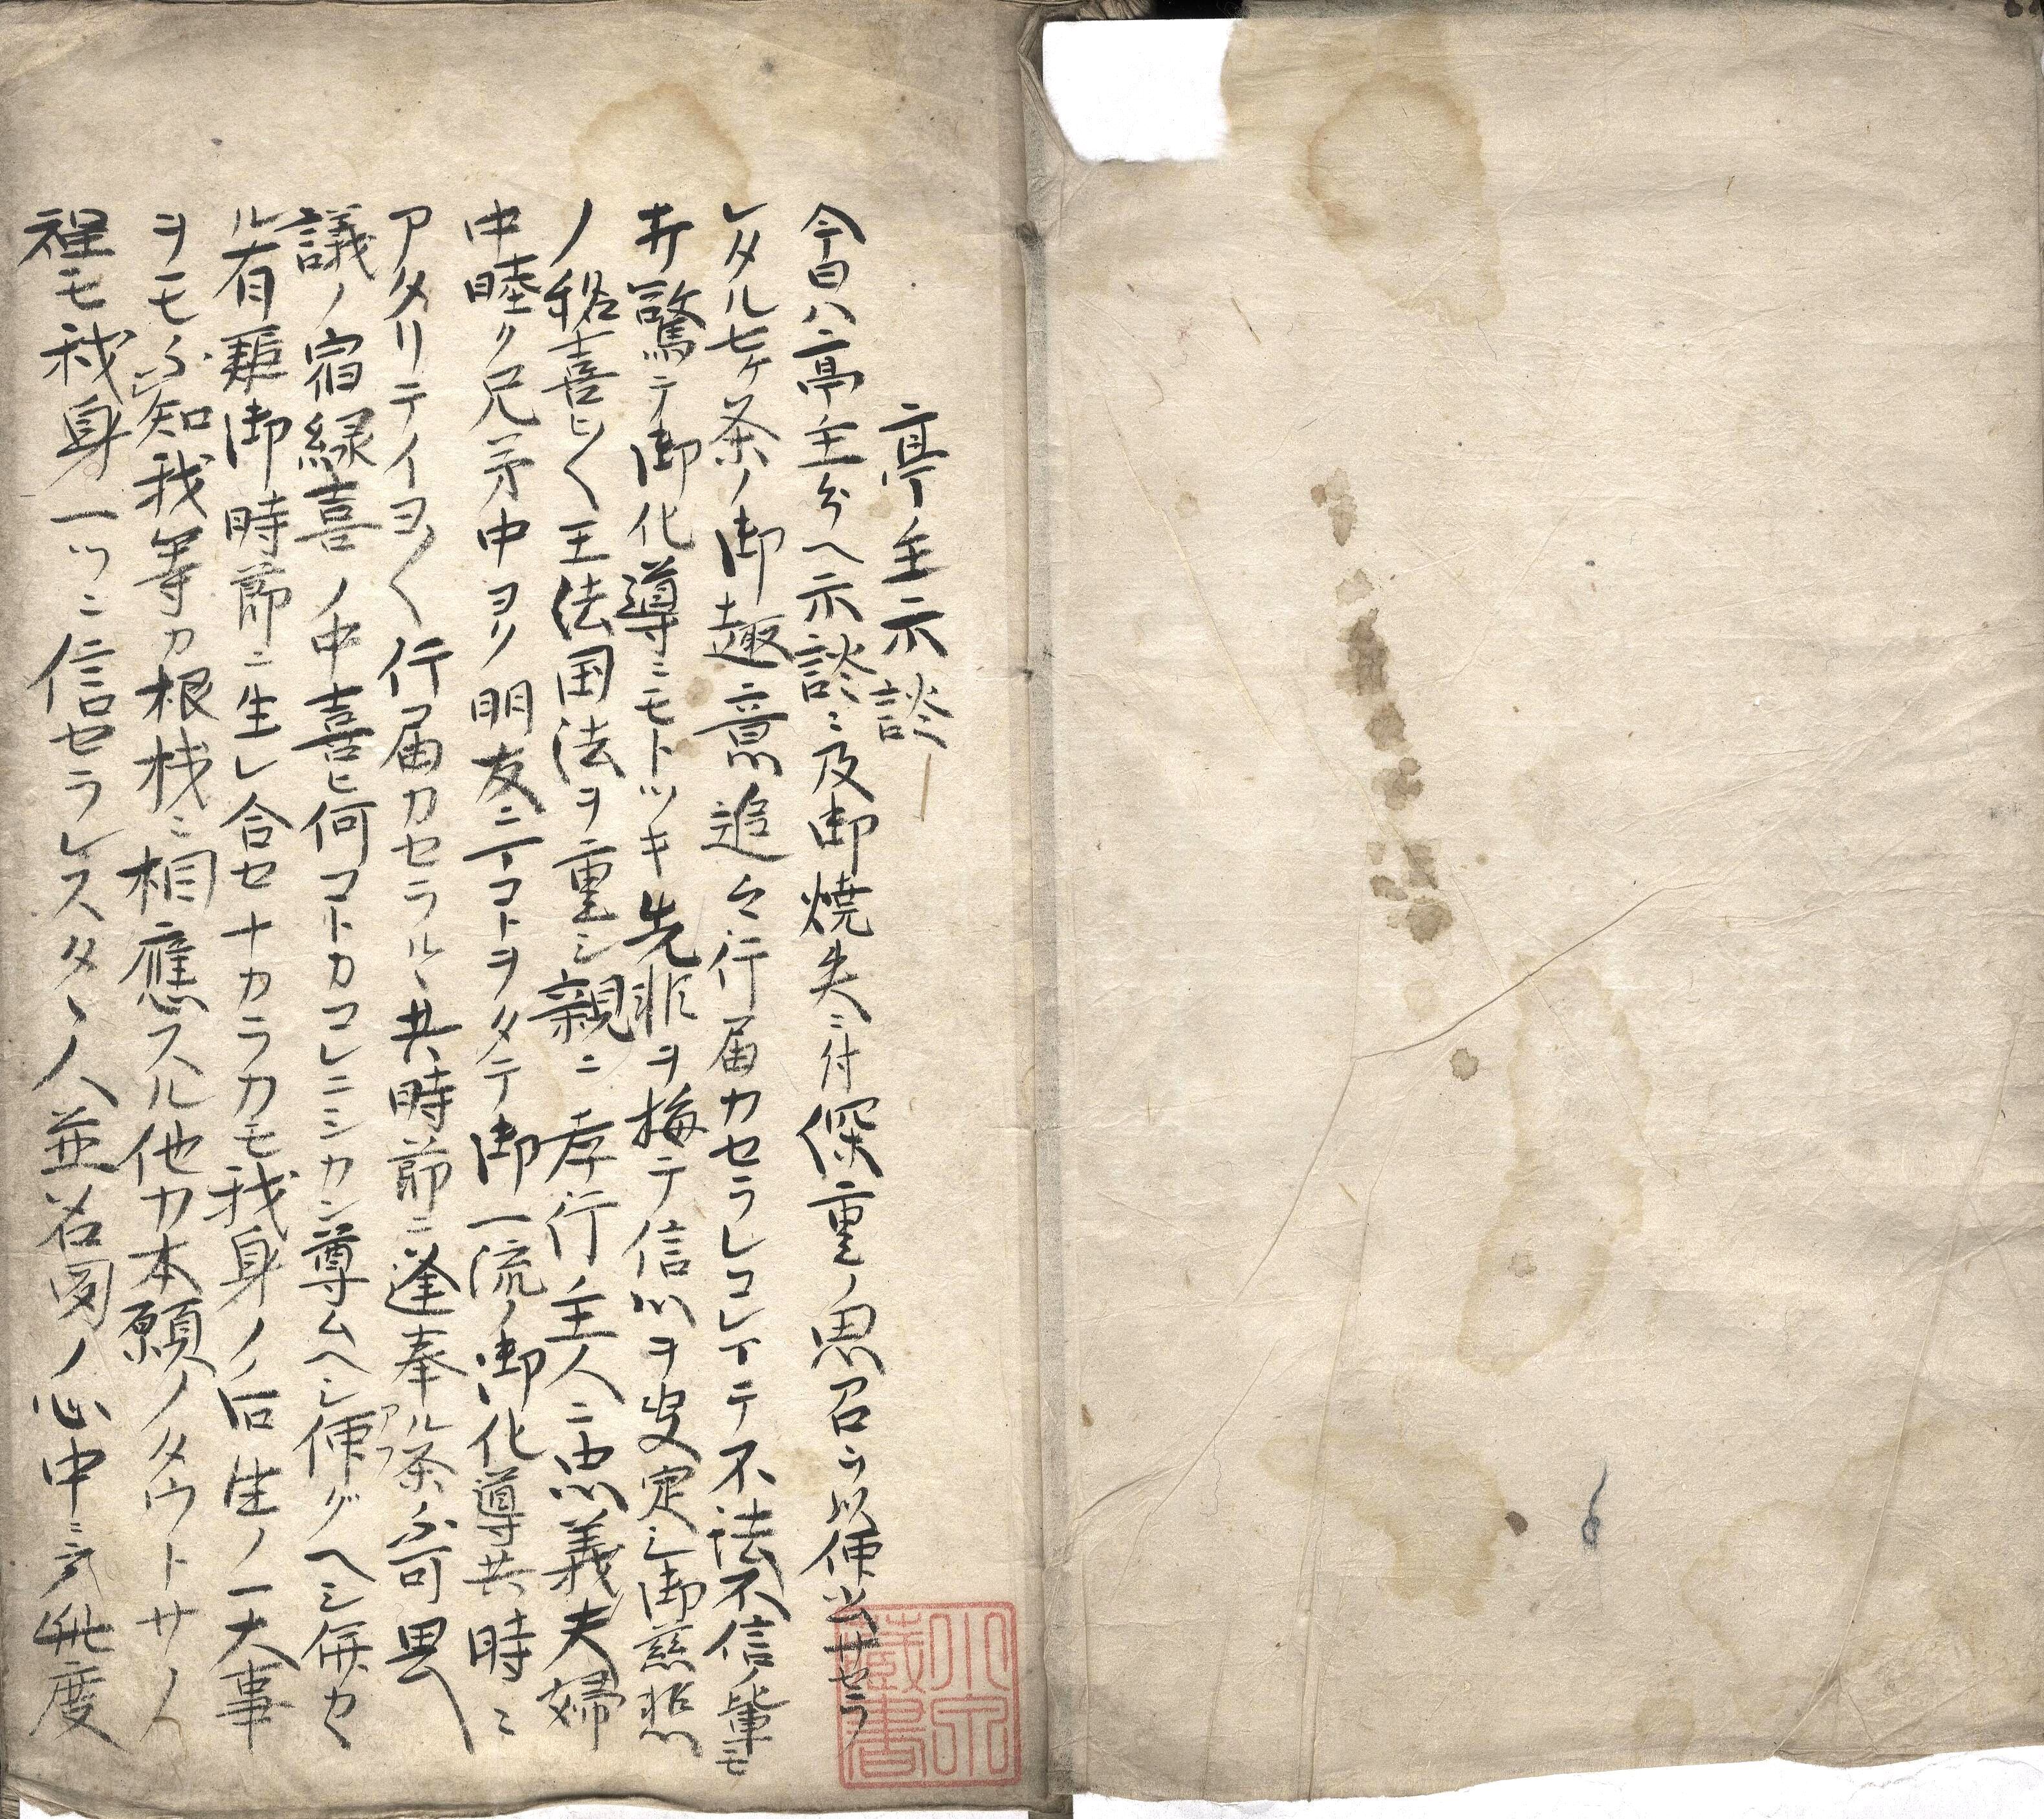 亭主示談
今日ハ亭主分ヘ示談ニ及御焼失ニ付深重ノ思召ヲ以使出サセラ
レタル七ケ条ノ御趣意追々行届カセラレコレイテ不法不信ノ輩モ
キ驚テ御化導ニモトツキ先非ヲ悔テ信心ヲ决定シ御慈悲
ノ程喜ヒ〱王法国法ヲ重シ親ニ孝行主人ニ忠義夫婦
中睦ク兄弟中ヨリ朋友ニ丁コトヲタテ御一流ノ御化導共時ニ
アタリテイヨ〱行届カセラルヽ共時節ニ逢奉ル条不可思
議ノ宿縁喜ノ中喜ヒ何コトカコレニシカン尊ムヘシ使グヘシ併カヽ
ル有難御時節ニ生レ合セナカラカモ我身ノ后生ノ一大事
ヲモ不知我等カ根機ニ相應スル他力本願ノタウトサノ
程モ我身一ツニ信セラレスタヽ人並名聞ノ心中ニテ此度
小泉蔵書
6